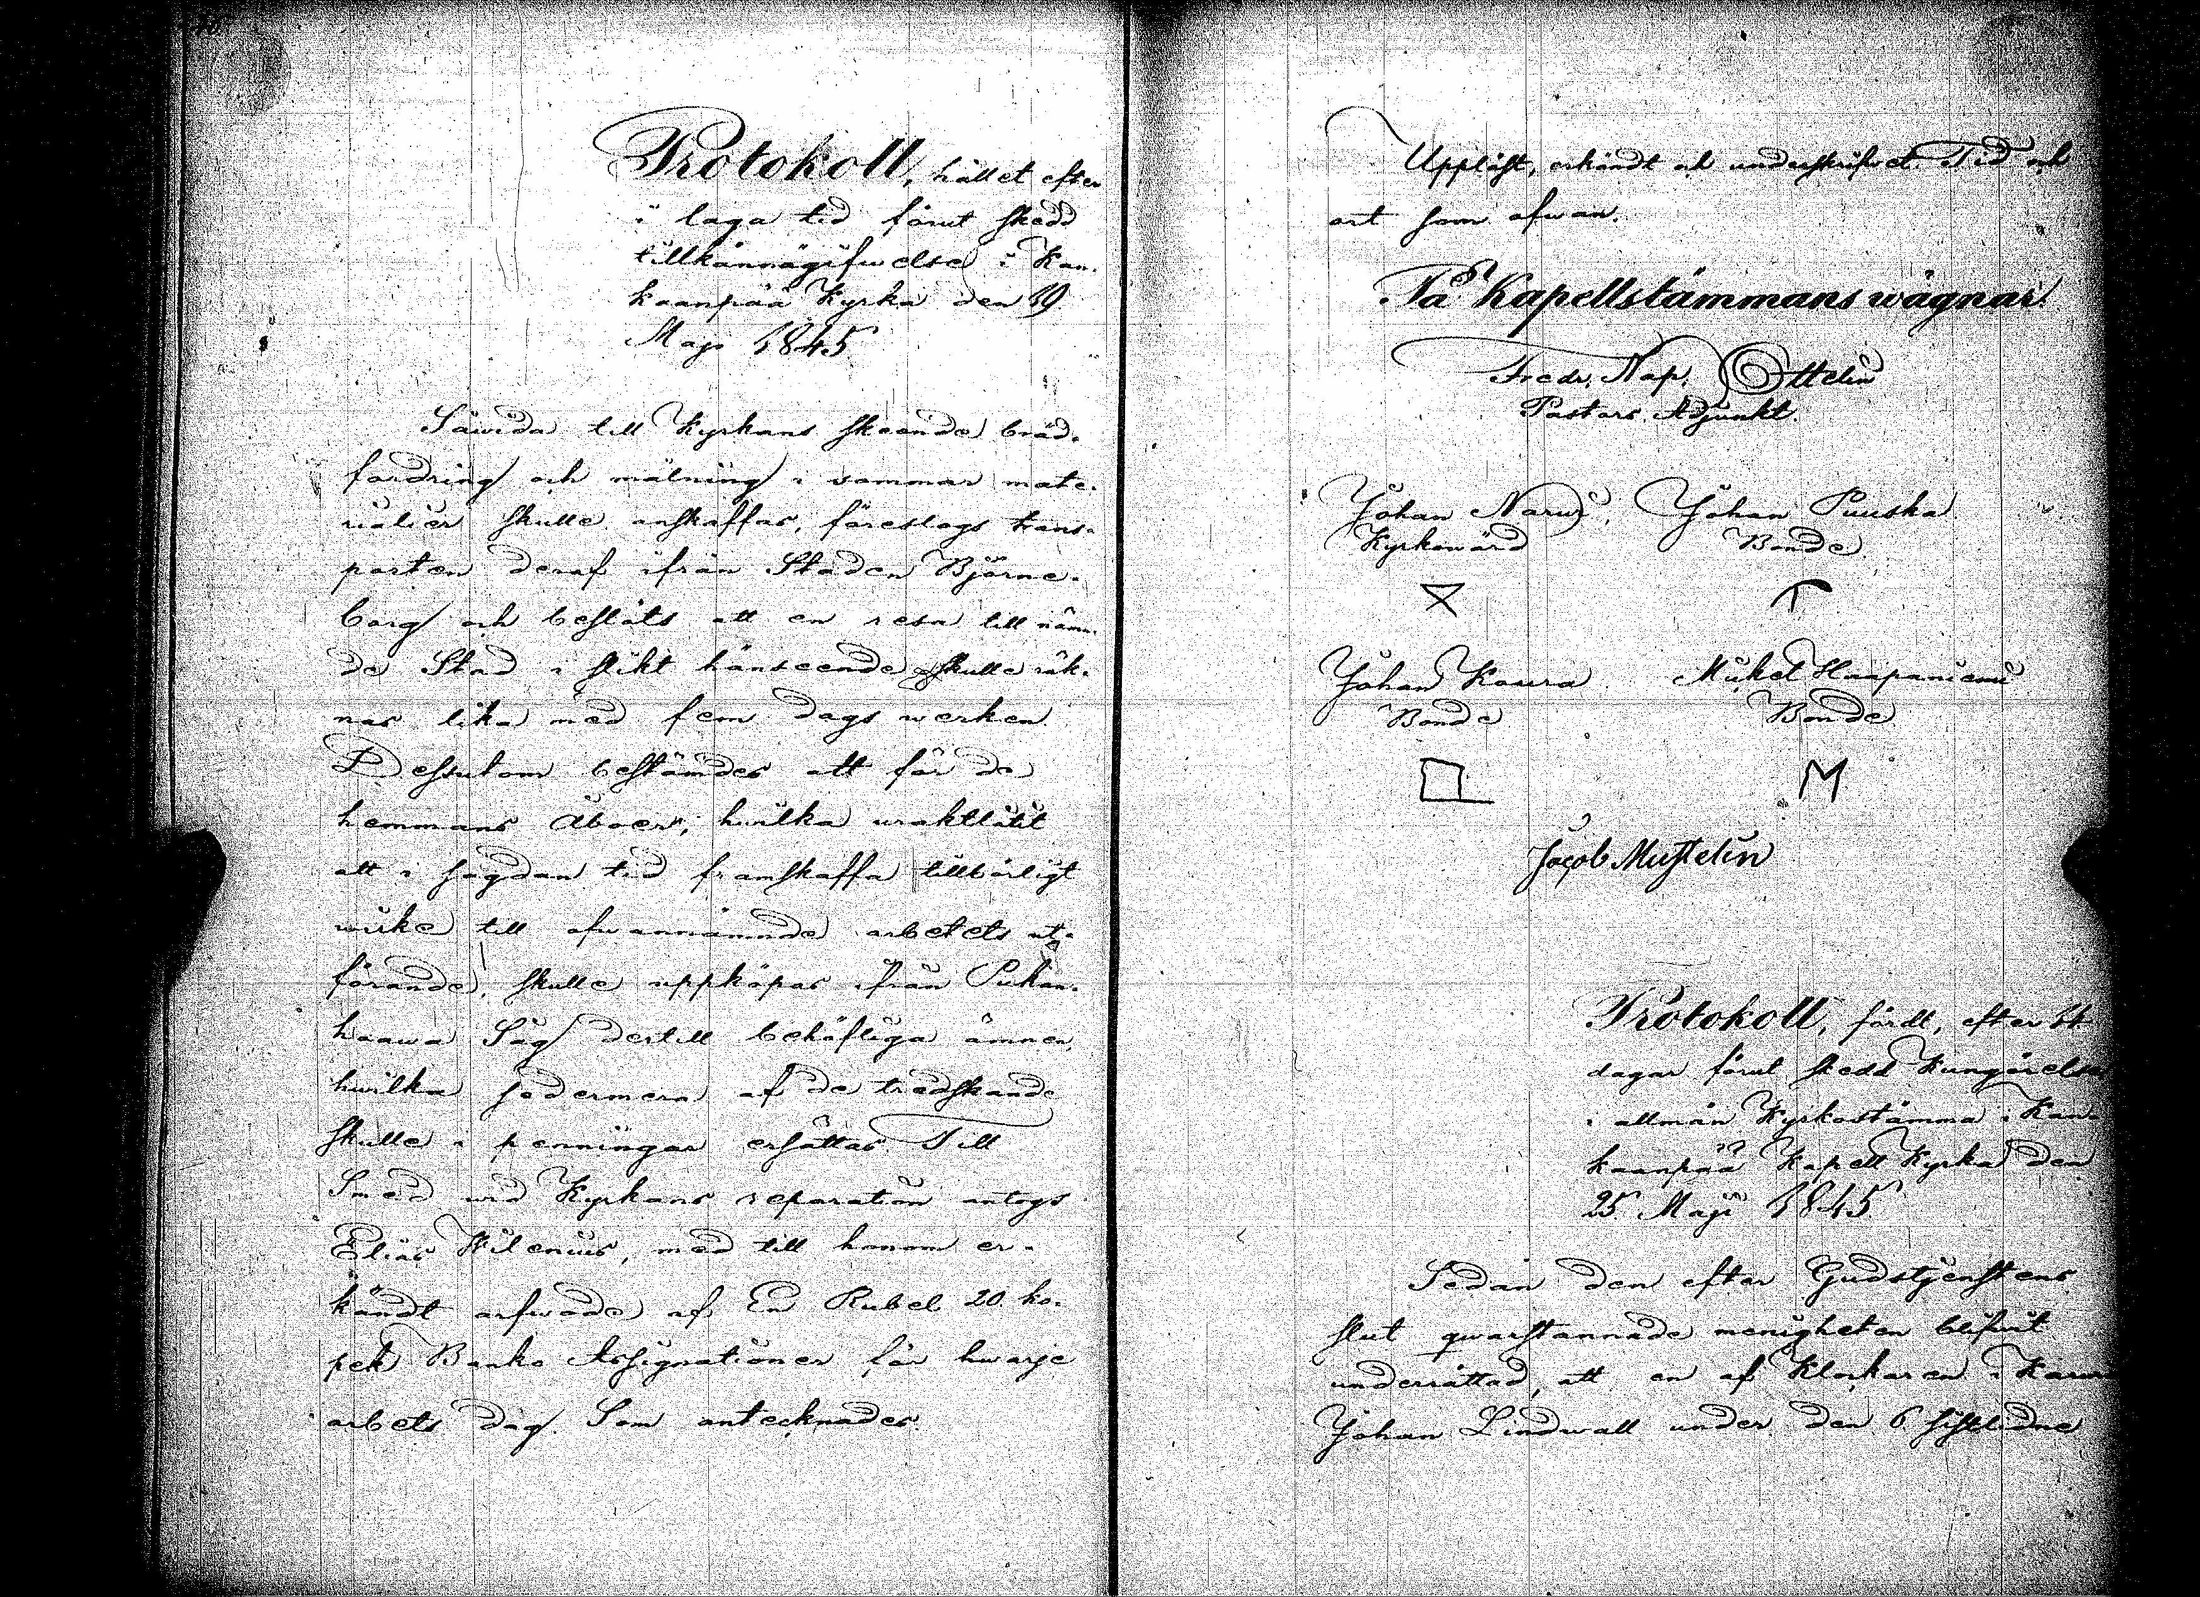 Protokoll, hållet efter
i laga tid förut skedd
tillkännagifwelse i Kan-
kaanpää Kyrka den 19.
Maji 1845.
Såwida till Kyrkans skeende bräd-
fordring och målning i sommar mate-
rialier skulle anskaffas, föreslogs trans-
porten deraf ifrån Staden Björne-
borg och beslöts att en resa till nämn-
de Stad i slikt hänseende skulle räk-
nas lika med fem dagswerken.
Dessutom bestämdes att för de
hemmans Åboer, hwilka uraktlåtit
att i sagdan tid framskaffa tillbörligt
wirke till ofwannämnde arbetets ut-
förande, skulle uppköpas ifrån
Såg dertill behöfliga ämnen,
hwilka sedermera af de tredskande
skulle i penningar ersättas. Till
Smed wid Kyrkans reparation antogs
Elias Wilenius, med till honom er-
kändt arfwode af En Rubel 20 ko-
pek Banko Assignationer för hwarje
arbets dag. Som antecknades.
Uppläst, erkändt och underskrifwet Tid och
ort som ofwan.
På Kapellstämmans wägnar.
Fredr. Nap. Ottelin
Pastors Adjunkt.
Johan Narwi, Johan Puuska
Kyrkowärd Bonde
Johan Koura Mickel Haapaniemi
Bonde Bonde
Jacob Mustelin
Protokoll, fördt, efter 14
dagar förut skedd Kungörelse
i allmän Kyrkostämma i Kan-
kaanpää Kapell Kyrka den
25 Maji 1845.
Sedan den efter Gudstjenstens
slut qwarstannade menigheten blifwit
underrättad, att en af Klockaren i
Johan Lindwall under den 6 sistlidne